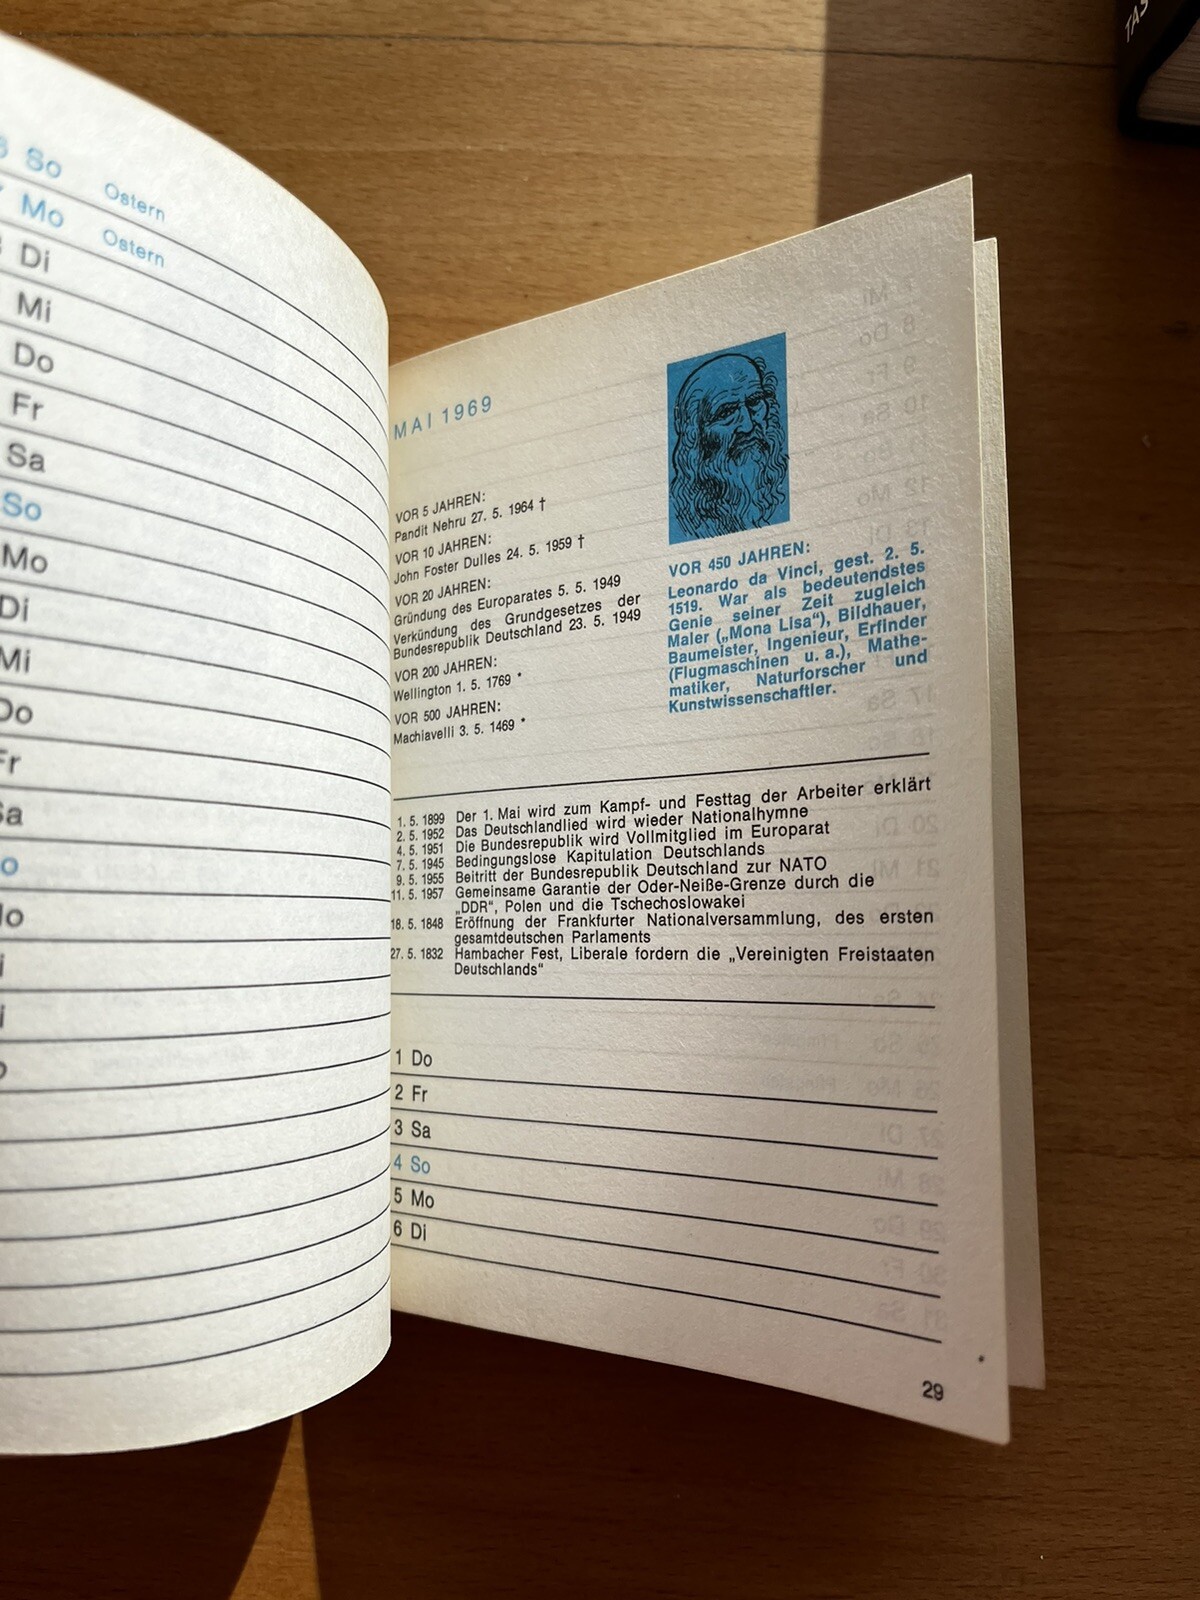 So Ostern
Mo Ostern
Di
Mi
Do
Fr
Sa
So
Mo
Di
Mi
Do
Fr
Sa
MAI 1969
VOR 5 JAHREN:
Pandit Nehru 27. 5. 1964 †
VOR 10 JAHREN:
John Foster Dulles 24. 5. 1959 †
VOR 20 JAHREN:
Gründung des Europarates 5. 5. 1949
Verkündung des Grundgesetzes der
Bundesrepublik Deutschland 23. 5. 1949
VOR 200 JAHREN:
Wellington 1. 5. 1769 *
VOR 500 JAHREN:
Machiavelli 3. 5. 1469 *
VOR 450 JAHREN:
Leonardo da Vinci, gest. 2. 5.
1519. War als bedeutendstes
Genie seiner Zeit zugleich
Maler („Mona Lisa“), Bildhauer,
Baumeister, Ingenieur, Erfinder
(Flugmaschinen u. a.), Mathe-
matiker, Naturforscher und
Kunstwissenschaftler.
1. 5. 1899 Der 1. Mai wird zum Kampf- und Festtag der Arbeiter erklärt
2. 5. 1952 Das Deutschlandlied wird wieder Nationalhymne
4. 5. 1951 Die Bundesrepublik wird Vollmitglied im Europarat
7. 5. 1945 Bedingungslose Kapitulation Deutschlands
9. 5. 1955 Beitritt der Bundesrepublik Deutschland zur NATO
11. 5. 1957 Gemeinsame Garantie der Oder-Neiße-Grenze durch die
„DDR“, Polen und die Tschechoslowakei
18. 5. 1848 Eröffnung der Frankfurter Nationalversammlung, des ersten
gesamtdeutschen Parlaments
27. 5. 1832 Hambacher Fest, Liberale fordern die „Vereinigten Freistaaten
Deutschlands“
1 Do
2 Fr
3 Sa
4 So
5 Mo
6 Di
29
TAS